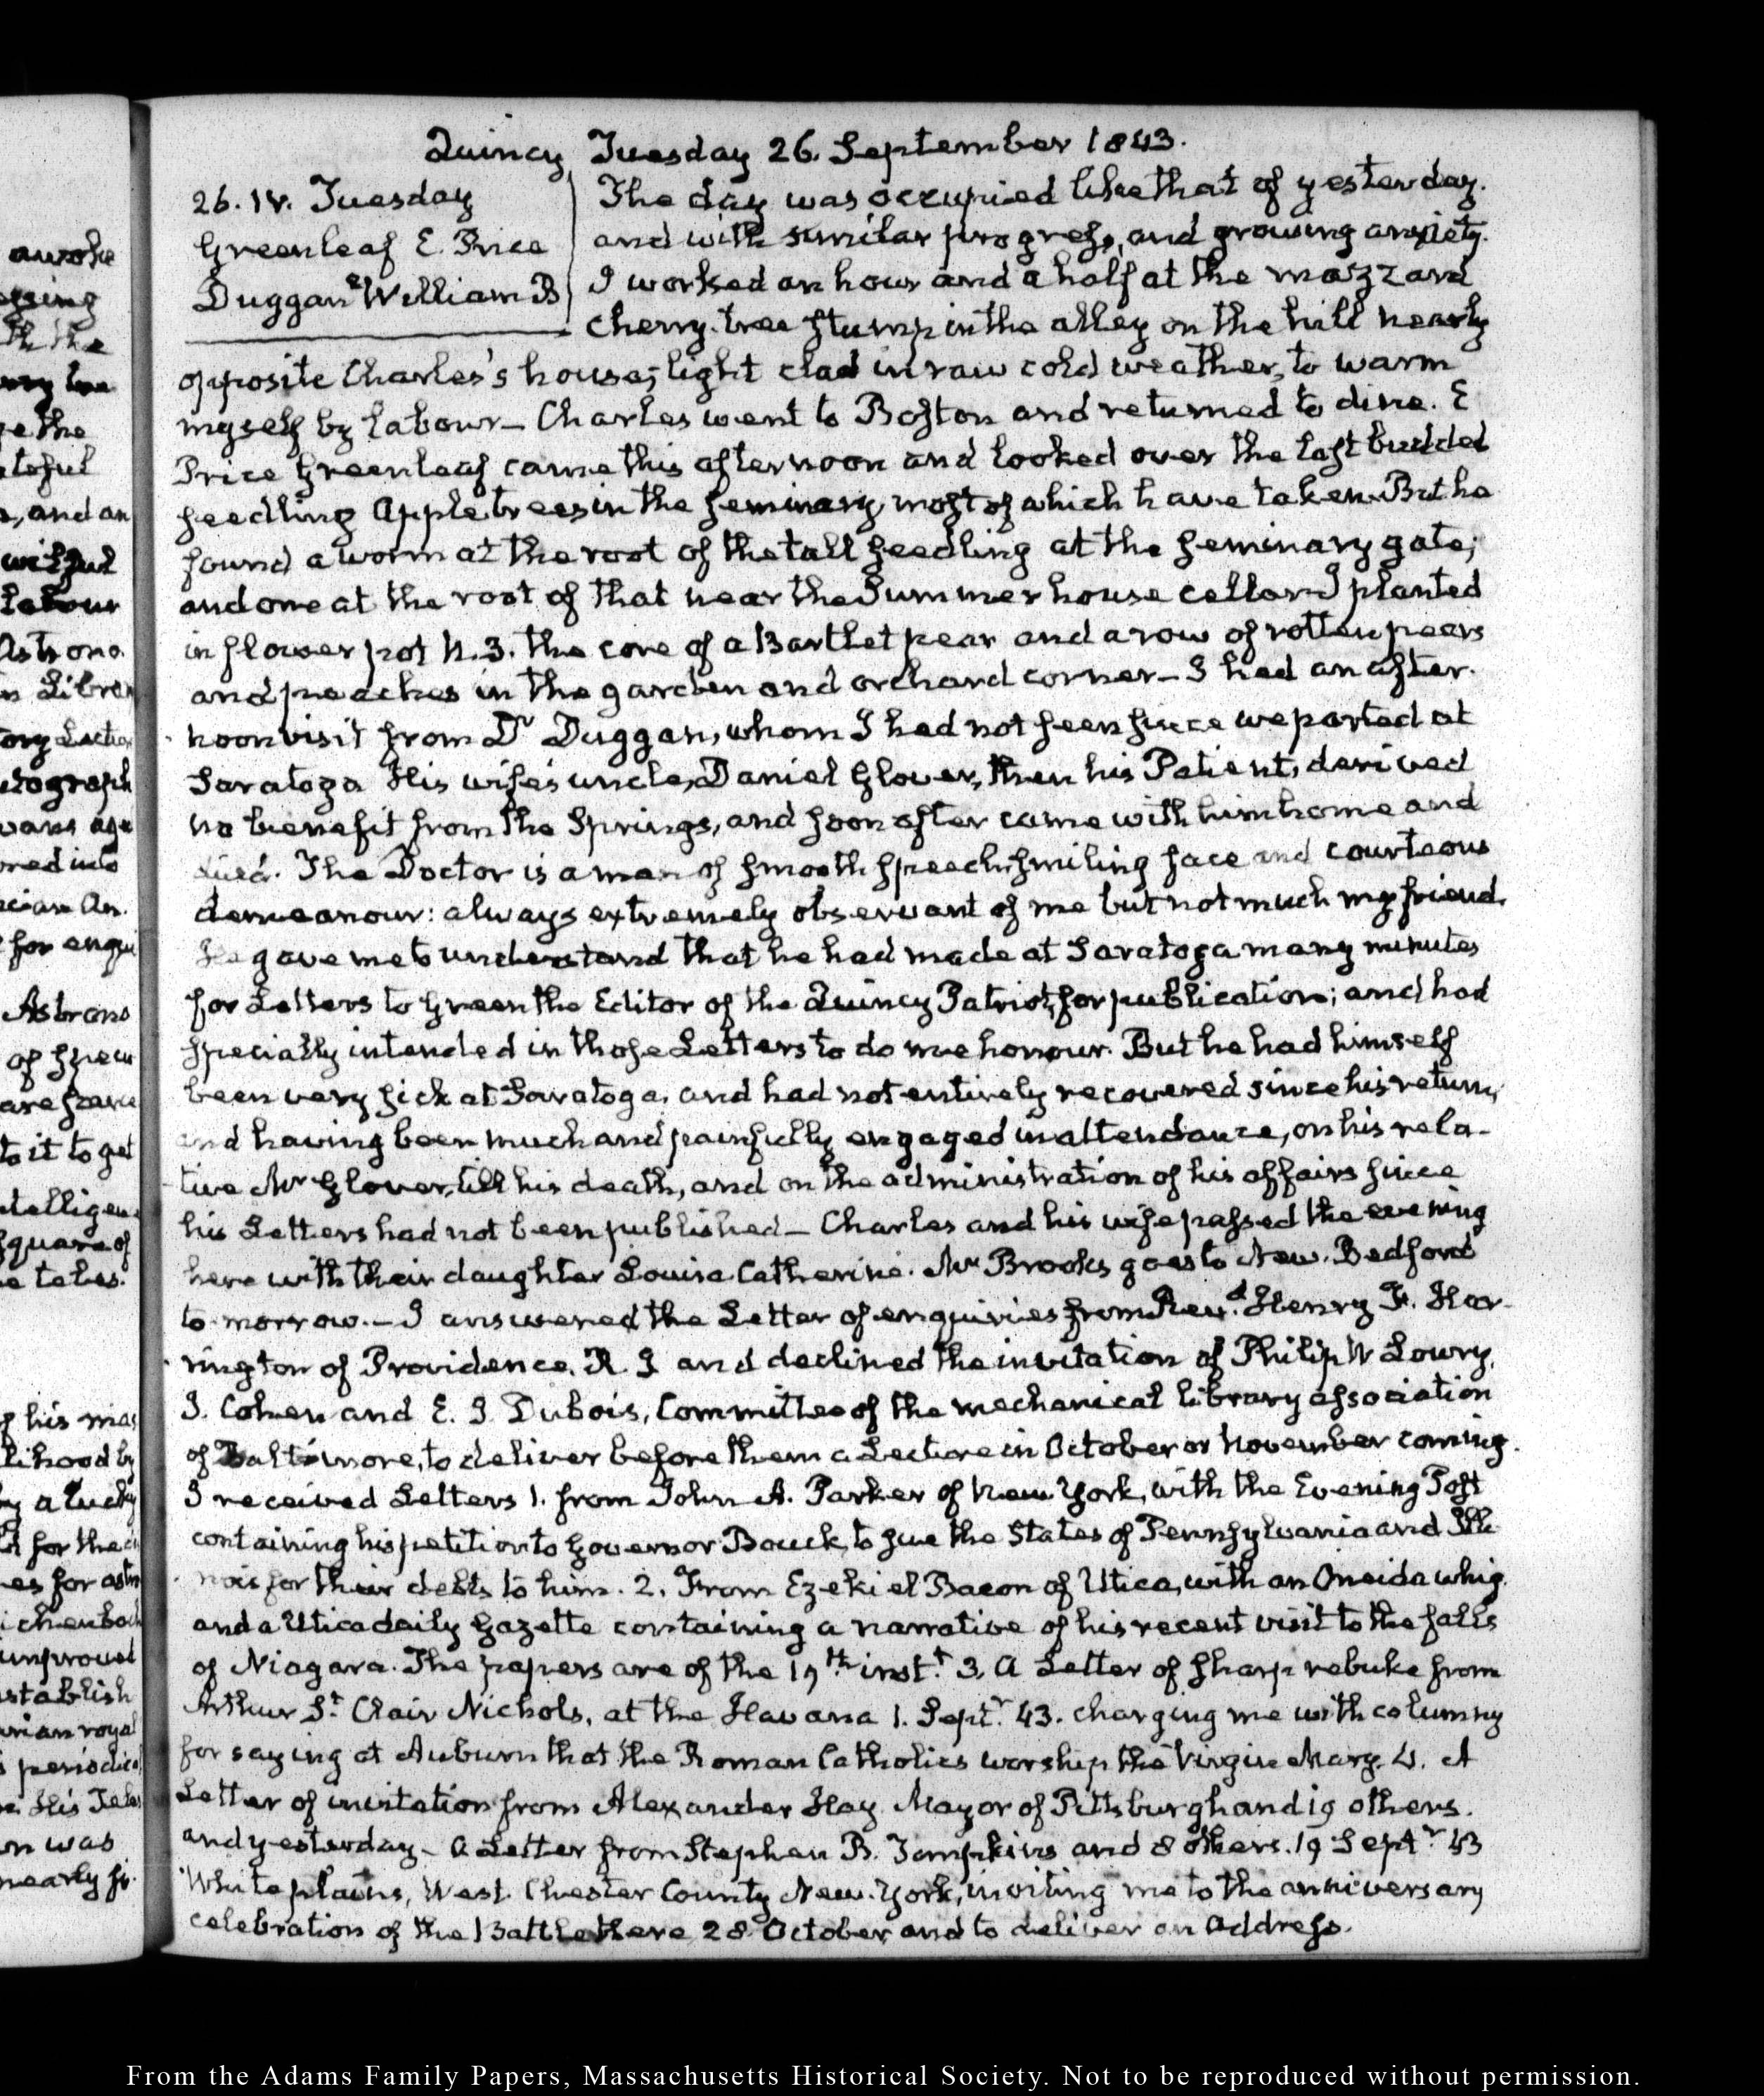 Quincy Tuesday 26. September 1843.
26. IV. Tuesday
Greenleaf E. Price
Duggan William B
The day was occupied like that of yesterday.
and with similar progress, and growing anxiety.
I worked an hour and a half at the mazzard
cherry-tree stump in the alley on the hill nearly
opposite Charles's house; light clad in raw cold weather, to warm
myself by labour— Charles went to Boston and returned to dine. E
Price Greenleaf came this afternoon and looked over the last budded
seedling Apple trees in the seminary, most of which have taken. But he
found a worm at the root of the tall seedling at the seminary gate;
and one at the root of that near the Summer house cellar— I planted
in flower pot N. 3. the core of a Bartlet pear and a row of rotten pears
and peaches in the garden and orchard corner— I had an after-
noon visit from Dr Duggan, whom I had not seen since we parted at
Saratoga His wife's uncle, Daniel Glover, then his Patient, derived
no benefit from the Springs, and soon after came with him home and
died. The Doctor is a man of smooth speech, smiling face and courteous
demeanour: always extremely observant of me but not much my friend.
He gave me to understand that he had made at Saratoga many minutes
for Letters to Green the Editor of the Quincy Patriot, for publication; and had
specially intended in those Letters to do me honour. But he had himself
been very sick at Saratoga, and had not entirely recovered since his return,
and having been much and painfully engaged in attendance, on his rela-
tive Mr Glover, till his death, and on the administration of his affairs since
his Letters had not been published— Charles and his wife passed the evening
here with their daughter Louisa Catherine. Mr Brooks goes to New-Bedford
to-morrow.— I answered the Letter of enquiries from Revd. Henry F. Har-
rington of Providence, R. I and declined the invitation of Philip W Lowry,
I. Cohen and E. I. Dubois, Committee of the mechanical library association
of Baltimore, to deliver before them a Lecture in October or November coming.
I received Letters 1. from John A. Parker of New York, with the Evening Post
containing his petition to Governor Bouck to sue the States of Pennsylvania and Illi-
nois for their debts to him. 2. From Ezekiel Bacon of Utica, with an Oneida whig
and a Utica daily Gazette containing a narrative of his recent visit to the falls
of Niagara. The papers are of the 19th. inst.t 3. A Letter of sharp rebuke from
Arthur St. Clair Nichols, at the Havana 1. Septr. 43. charging me with calumny
for saying at Auburn that the Roman Catholics worship the Virgin Mary. 4. A
Letter of invitation from Alexander Hay Mayor of Pittsburgh and 19 others.
and yesterday— a Letter from Stephen B. Tompkins and 8 others. 19 Septr 43
White plains, West Chester County New-York, inviting me to the anniversary
celebration of the Battle there 28 October and to deliver an Address.
From the Adams Family Papers, Massachusetts Historical Society. Not to be reproduced without permission.